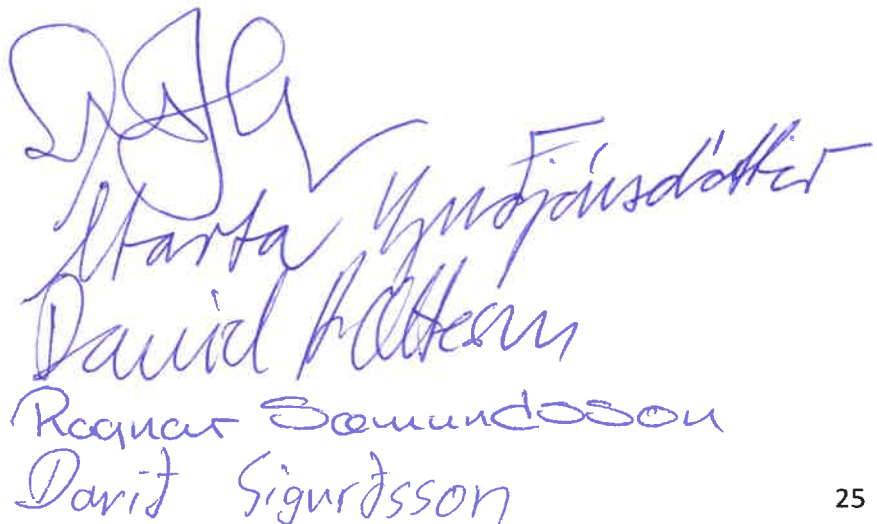 Marta Guðjónsdóttir
David
Ragnar Sæmundsson
Davíð Sigurðsson
25